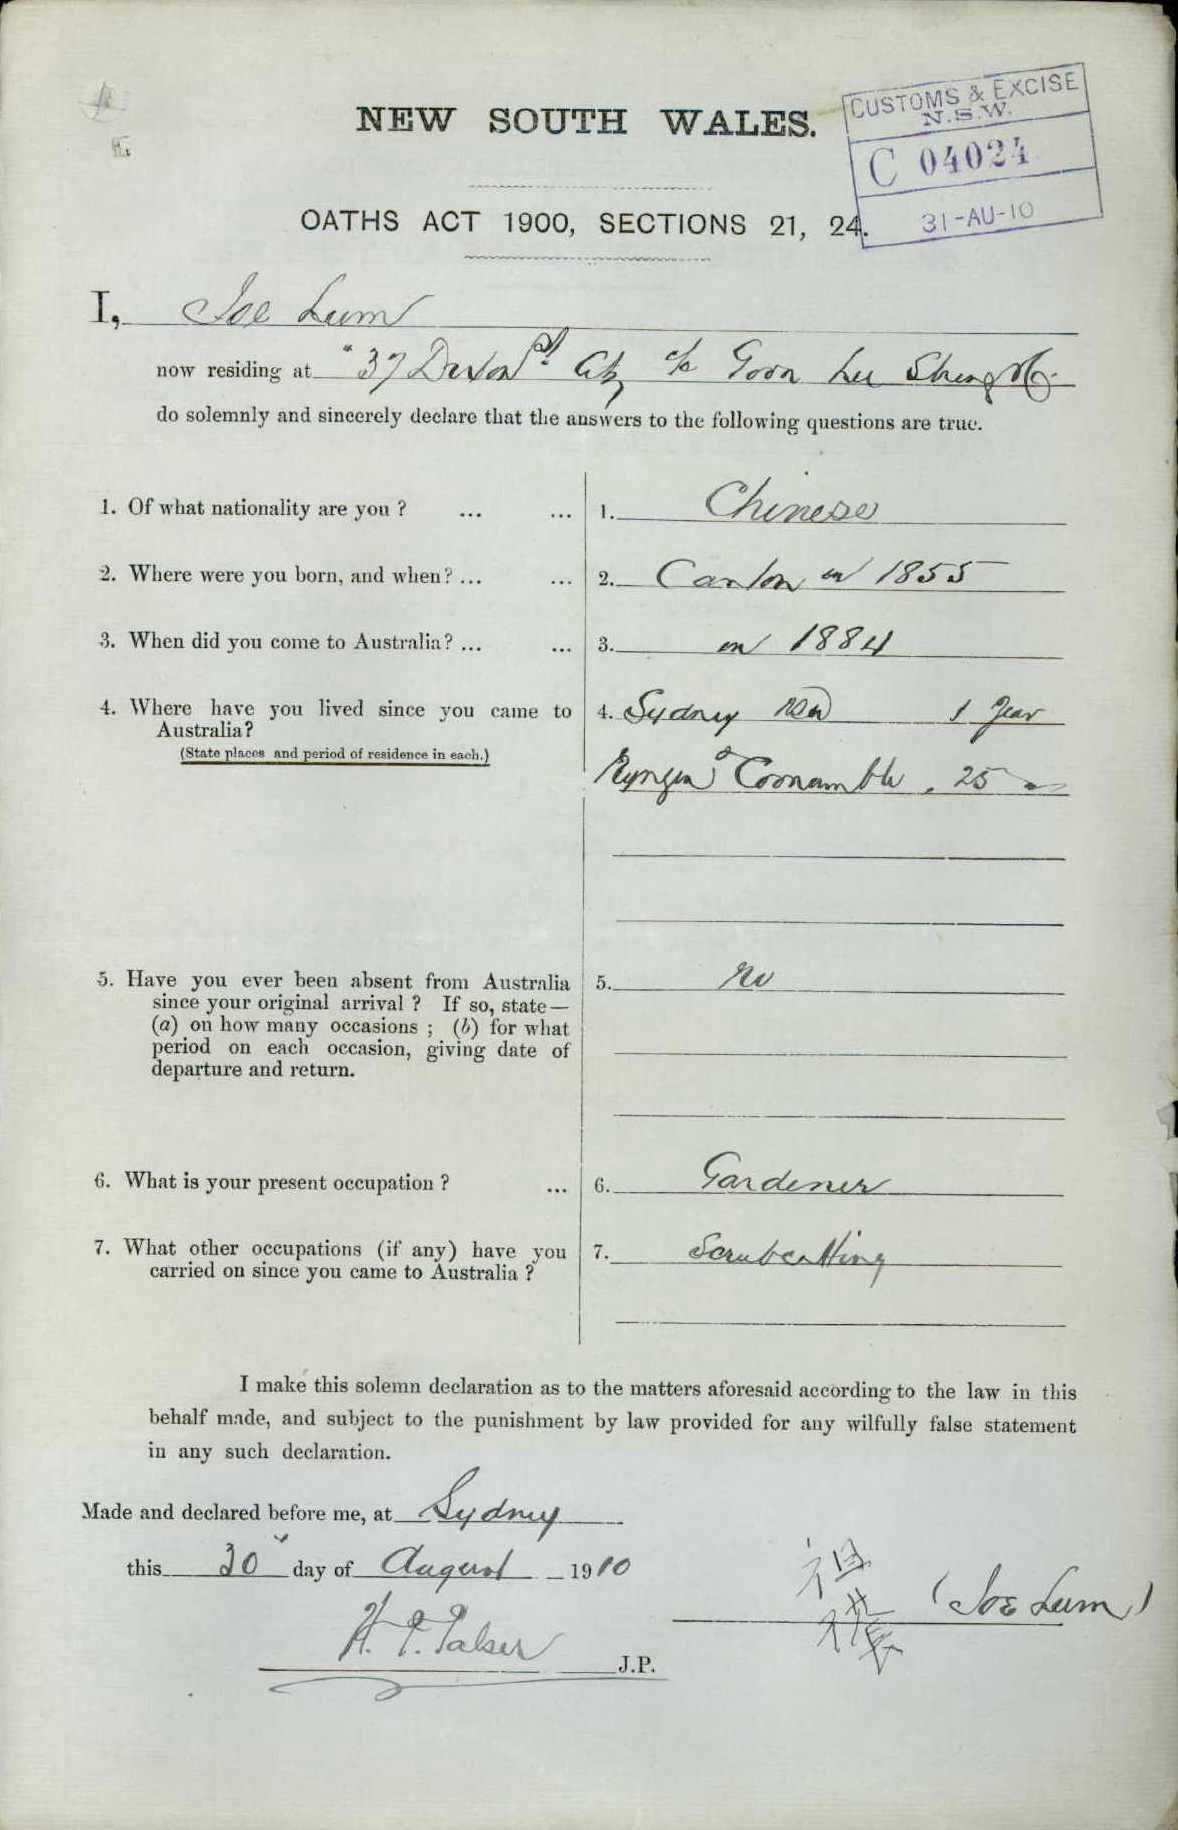 NEW SOUTH WALES.
CUSTOMS & EXCISE
N.S.W.
C 04024
31-AU-10
OATHS ACT 1900, SECTIONS 21, 24.
I, Joe Lum
now residing at 37 Dixon St City c/o Goon Lee Shing & Co
do solemnly and sincerely declare that the answers to the following questions are true.
1. Of what nationality are you ? ... ... 1. Chinese
2. Where were you born, and when? ... ... 2. Canton in 1855
3. When did you come to Australia? ... ... 3. in 1884
4. Where have you lived since you came to 4. Sydney NSW 1 Year
Australia?
(State places and period of residence in each.)
Nyngan & Coonamble . 25 "
5. Have you ever been absent from Australia 5. No
since your original arrival ? If so, state—
(a) on how many occasions ; (b) for what
period on each occasion, giving date of
departure and return.
6. What is your present occupation ? ... 6. Gardener
7. What other occupations (if any) have you 7. Scrubcutting
carried on since you came to Australia ?
I make this solemn declaration as to the matters aforesaid according to the law in this
behalf made, and subject to the punishment by law provided for any wilfully false statement
in any such declaration.
Made and declared before me, at Sydney
this 30th day of August 1910
祖 (Joe Lum)
H. J.P.